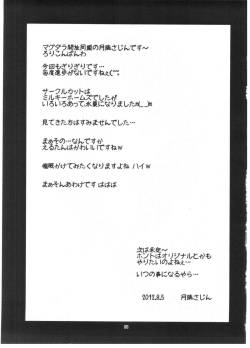 マグダラ開放同盟の月嶋さじんです～
ろりこんばんわ
今回もぎりぎりです…
毎度進歩がないですねぇ(^^;
サークルカットは
ミルキィホームズでしたが
いろいろあって、氷菓になりましたm(__)m
見てきた方はすみませんでした…
まぁその…なんですか
えるたんはかわいいですねw
催眠がけてみたくなりますよね ハイw
まぁそんなわけです ははは
次は未定～
ホントはオリジナルとかも
やりたいのよねぇ…
いつの事になるやら…
2012.8.5 月嶋さじん